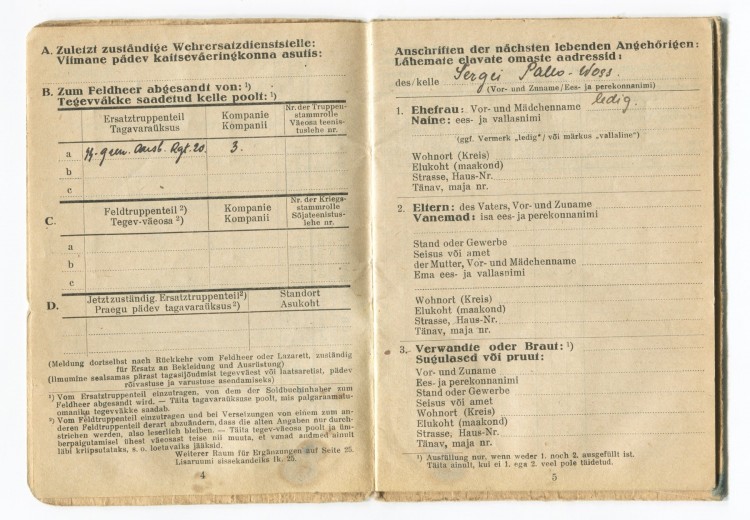 A. Zuletzt zuständige Wehrersatzdienststelle:
Viimane pädev kaitseväeringkonna asutis:
B. Zum Feldheer abgesandt von: ¹)
Tegevväkke saadetud kelle poolt: ¹)
Ersatztruppenteil
Tagavaraüksus
Kompanie
Kompanii
Nr. der Truppen-
stammrolle
Väeosa teenis-
tuslehe nr.
a
Gren. Ausb. Rgt. 20.
3.
b
c
C.
Feldtruppenteil ²)
Tegev-väeosa ²)
Kompanie
Kompanii
Nr. der Kriegs-
stammrolle
Sõjateenistus-
lehe nr.
a
b
c
D.
Jetzt zuständig. Ersatztruppenteil²)
Praegu pädev tagavaraüksus²)
Standort
Asukoht
(Meldung dortselbst nach Rückkehr vom Feldheer oder Lazarett, zuständig
für Ersatz an Bekleidung und Ausrüstung)
(Ilmumine sealsamas pärast tagasijõudmist tegevväest või laatsaretist, pädev
rõivastuse ja varustuse asendamiseks)
¹) Vom Ersatztruppenteil einzutragen, von dem der Soldbuchinhaber zum
Feldheer abgesandt wird. — Täita tagavaraüksuse poolt, mis palgaraamatu-
omaniku tegevväkke saadab.
²) Vom Feldtruppenteil einzutragen und bei Versetzungen von einem zum an-
deren Feldtruppenteil derart abzuändern, dass die alten Angaben nur durch-
strichen werden, also leserlich bleiben. — Täita tegev-väeosa poolt ja üm-
berpaigutamisel ühest väeosast teise nii muuta, et vanad andmed ainult
läbi kriipsutataks, s. o. loetavaiks jääksid.
Weiterer Raum für Ergänzungen auf Seite 25.
Lisaruumi sissekandeiks lk. 25.
4
Anschriften der nächsten lebenden Angehörigen:
Lähemate elavate omaste aadressid:
des/kelle Sergei Paleo-Woss.
(Vor- und Zuname/Ees- ja perekonnanimi)
1. Ehefrau: Vor- und Mädchenname ledig.
Naine: ees- ja vallasnimi
(ggf. Vermerk „ledig"/ või märkus „vallaline")
Wohnort (Kreis)
Elukoht (maakond)
Strasse, Haus-Nr.
Tänav, maja nr.
2. Eltern: des Vaters, Vor- und Zuname
Vanemad: isa ees- ja perekonnanimi
Stand oder Gewerbe
Seisus või amet
der Mutter, Vor- und Mädchenname
Ema ees- ja vallasnimi
Wohnort (Kreis)
Elukoht (maakond)
Strasse, Haus-Nr.
Tänav, maja nr.
3. Verwandte oder Braut: ¹)
Sugulased või pruut:
Vor- und Zuname
Ees- ja perekonnanimi
Stand oder Gewerbe
Seisus või amet
Wohnort (Kreis)
Elukoht (maakond)
Strasse, Haus-Nr.
Tänav, maja nr.
¹) Ausfüllung nur, wenn weder 1. noch 2. ausgefüllt ist.
Täita ainult, kui ei 1. ega 2. veel pole täidetud.
5